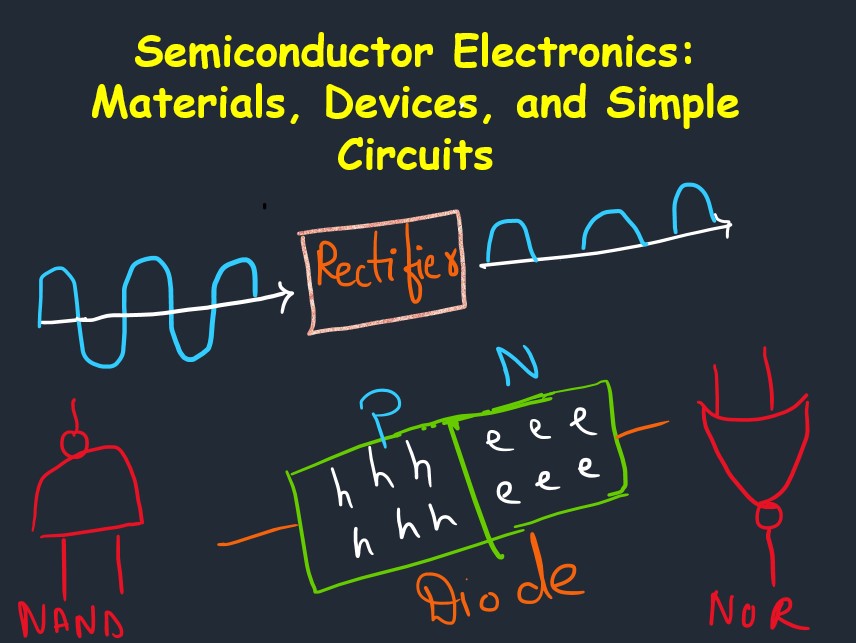 Semiconductor Electronics:
Materials, Devices, and Simple
Circuits
Rectifier
P
N
h h h
e e e
h h h
e e e
Diode
NAND
NOR